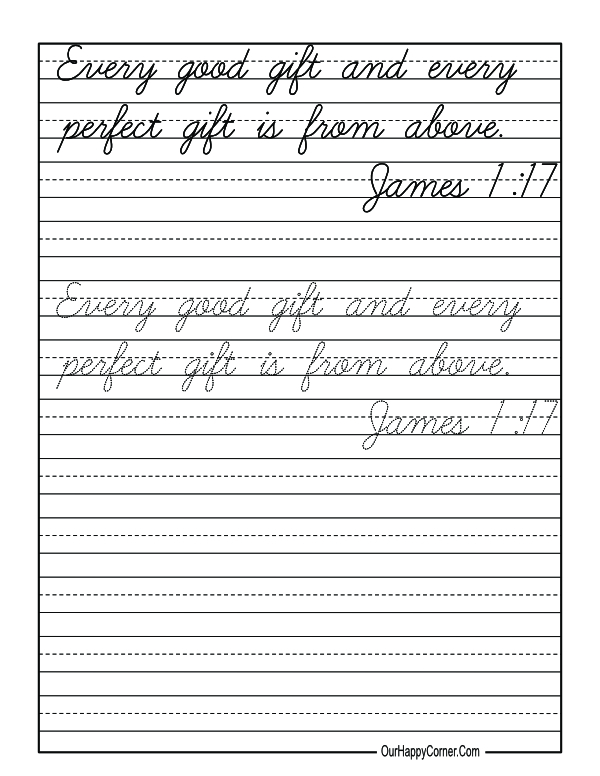 Every good gift and every
perfect gift is from above.
James 1:17
Every good gift and every
perfect gift is from above.
James 1:17
OurHappyCorner.Com